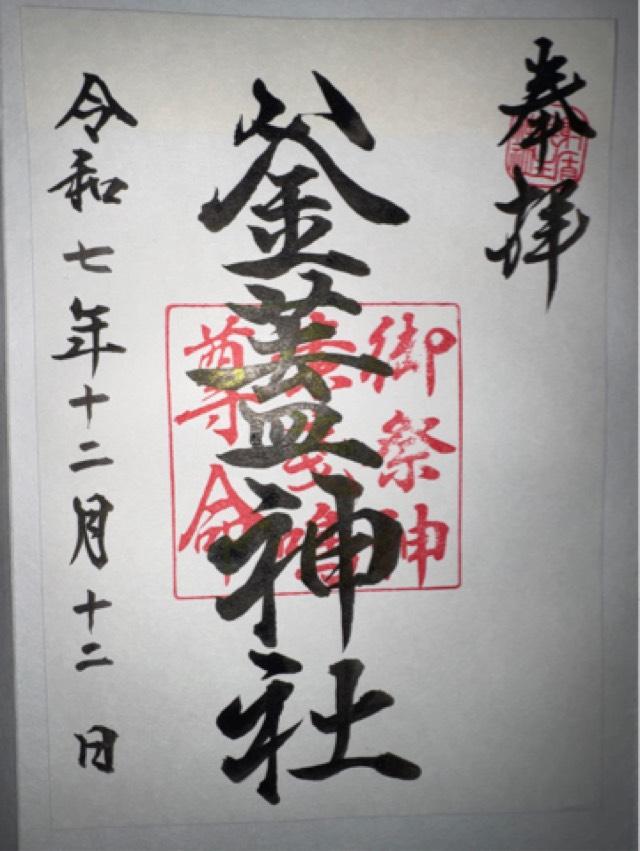 奉拝
釜蓋神社
御祭神
尊命
令和七年十二月十二日